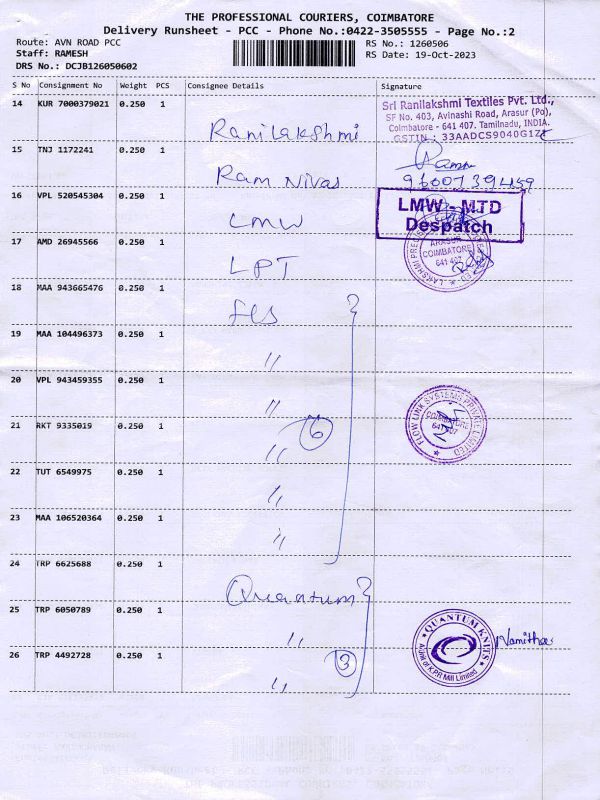 THE PROFESSIONAL COURIERS, COIMBATORE
Delivery Runsheet - PCC - Phone No.:0422-3505555 - Page No.:2
Route: AVN ROAD PCC
Staff: RAMESH
DRS No.: DCJB126050602
RS No.: 1260506
RS Date: 19-Oct-2023
S No Consignment No Weight PCS Consignee Details Signature
14 KUR 7000379021 0.250 1 Ranilakshmi
Sri Ranilakshmi Textiles Pvt. Ltd.,
SF No. 403, Avinashi Road, Arasur (Po),
Coimbatore - 641 407. Tamilnadu, INDIA.
GSTIN : 33AADCS9040G1Z
15 TNJ 1172241 0.250 1 Ram Nivas
16 VPL 520545304 0.250 1 LMW
LMW - MTD
Despatch
17 AMD 26945566 0.250 1 LPT
ARASUR
COIMBATORE
641 407
18 MAA 943665476 0.250 1 FLS
19 MAA 104496373 0.250 1 "
20 VPL 943459355 0.250 1 "
21 RKT 9335019 0.250 1 " 6
FLOW LINK SYSTEMS PRIVATE LIMITED
COIMBATORE
641 407
22 TUT 6549975 0.250 1 "
23 MAA 106520364 0.250 1 "
24 TRP 6625688 0.250 1 Quantum
25 TRP 6050789 0.250 1 "
QUANTUM KNITS
A Unit of K.P.R Mill Limited
Namitha
26 TRP 4492728 0.250 1 " 3